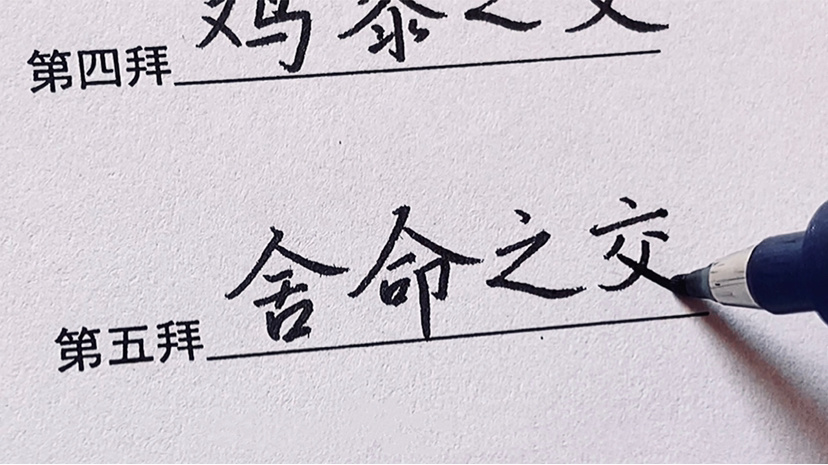 第四拜 鸡黍之交
第五拜 舍命之交